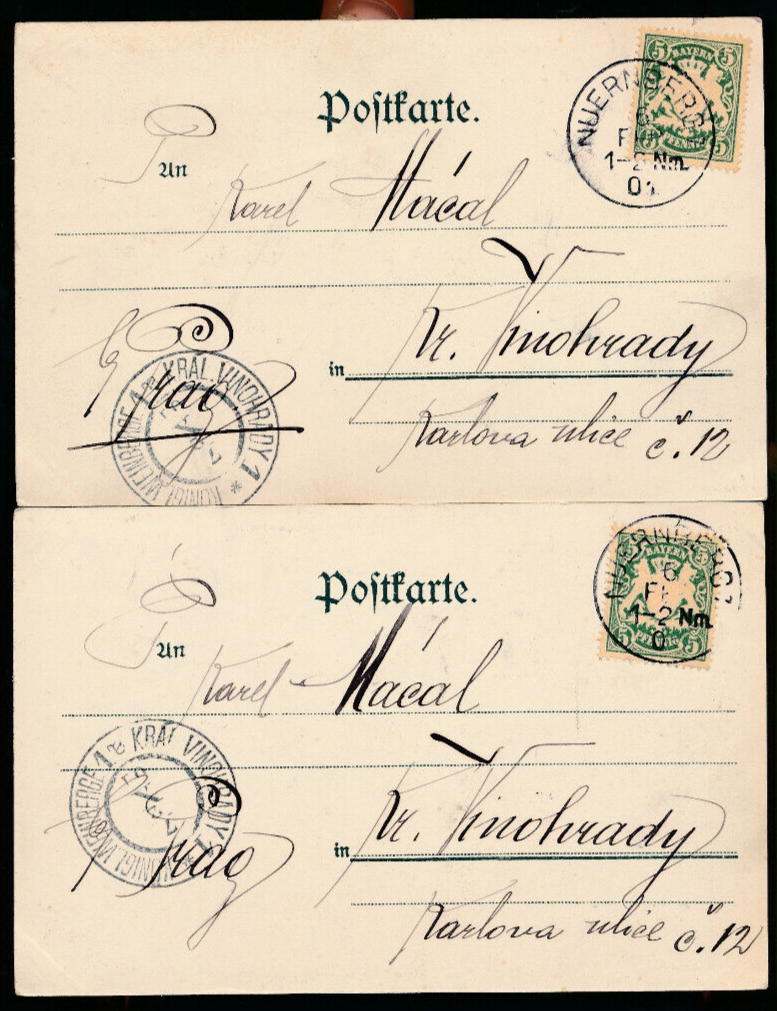 Postkarte.
5 BAYERN 5
5 PFENNIG 5
NUERNBERG
6
1-2 Nm.
01
An
Karel Mácal
in Kr. Vinohrady
Prag
KRÁL. VINOHRADY 1 * KÖNIGL. WEINBERGE 1
Karlova ulice č. 12
Postkarte.
BAYERN
5 PFENNIG 5
NUERNBERG 2
6
1-2 Nm.
0
An
Karel Mácal
KRÁL. VINOHRADY 1 * KÖNIGL. WEINBERGE 1
in Kr. Vinohrady
Prag
Karlova ulice č. 12